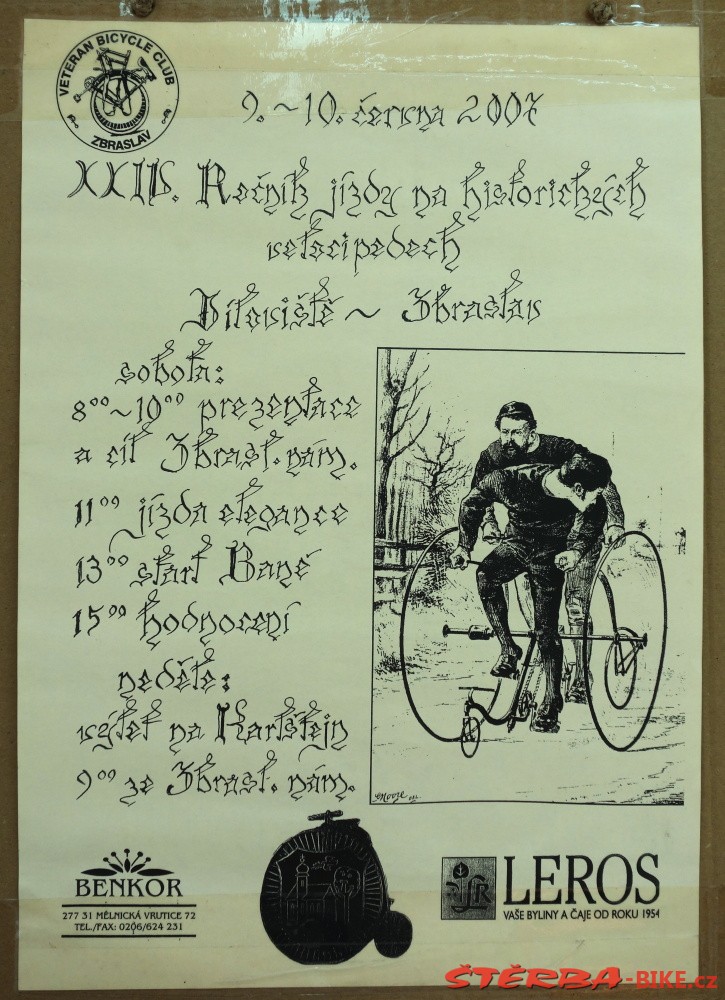 VETERAN BICYCLE CLUB
ZBRASLAV
9. ~ 10. června 2007
XXIV. Ročník jízdy na historických
velocipedech
Jíloviště ~ Zbraslav
sobota:
8⁰⁰~10⁰⁰ prezentace
a cíl Zbrasl. nám.
11⁰⁰ jízda elegance
13⁰⁰ start Baně
15⁰⁰ hodnocení
neděle:
výlet na Karlštejn
9⁰⁰ ze Zbrasl. nám.
BENKOR
277 31 MĚLNICKÁ VRUTICE 72
TEL./FAX: 0206/624 231
LEROS
VAŠE BYLINY A ČAJE OD ROKU 1954
ŠTĚRBA-BIKE.cz